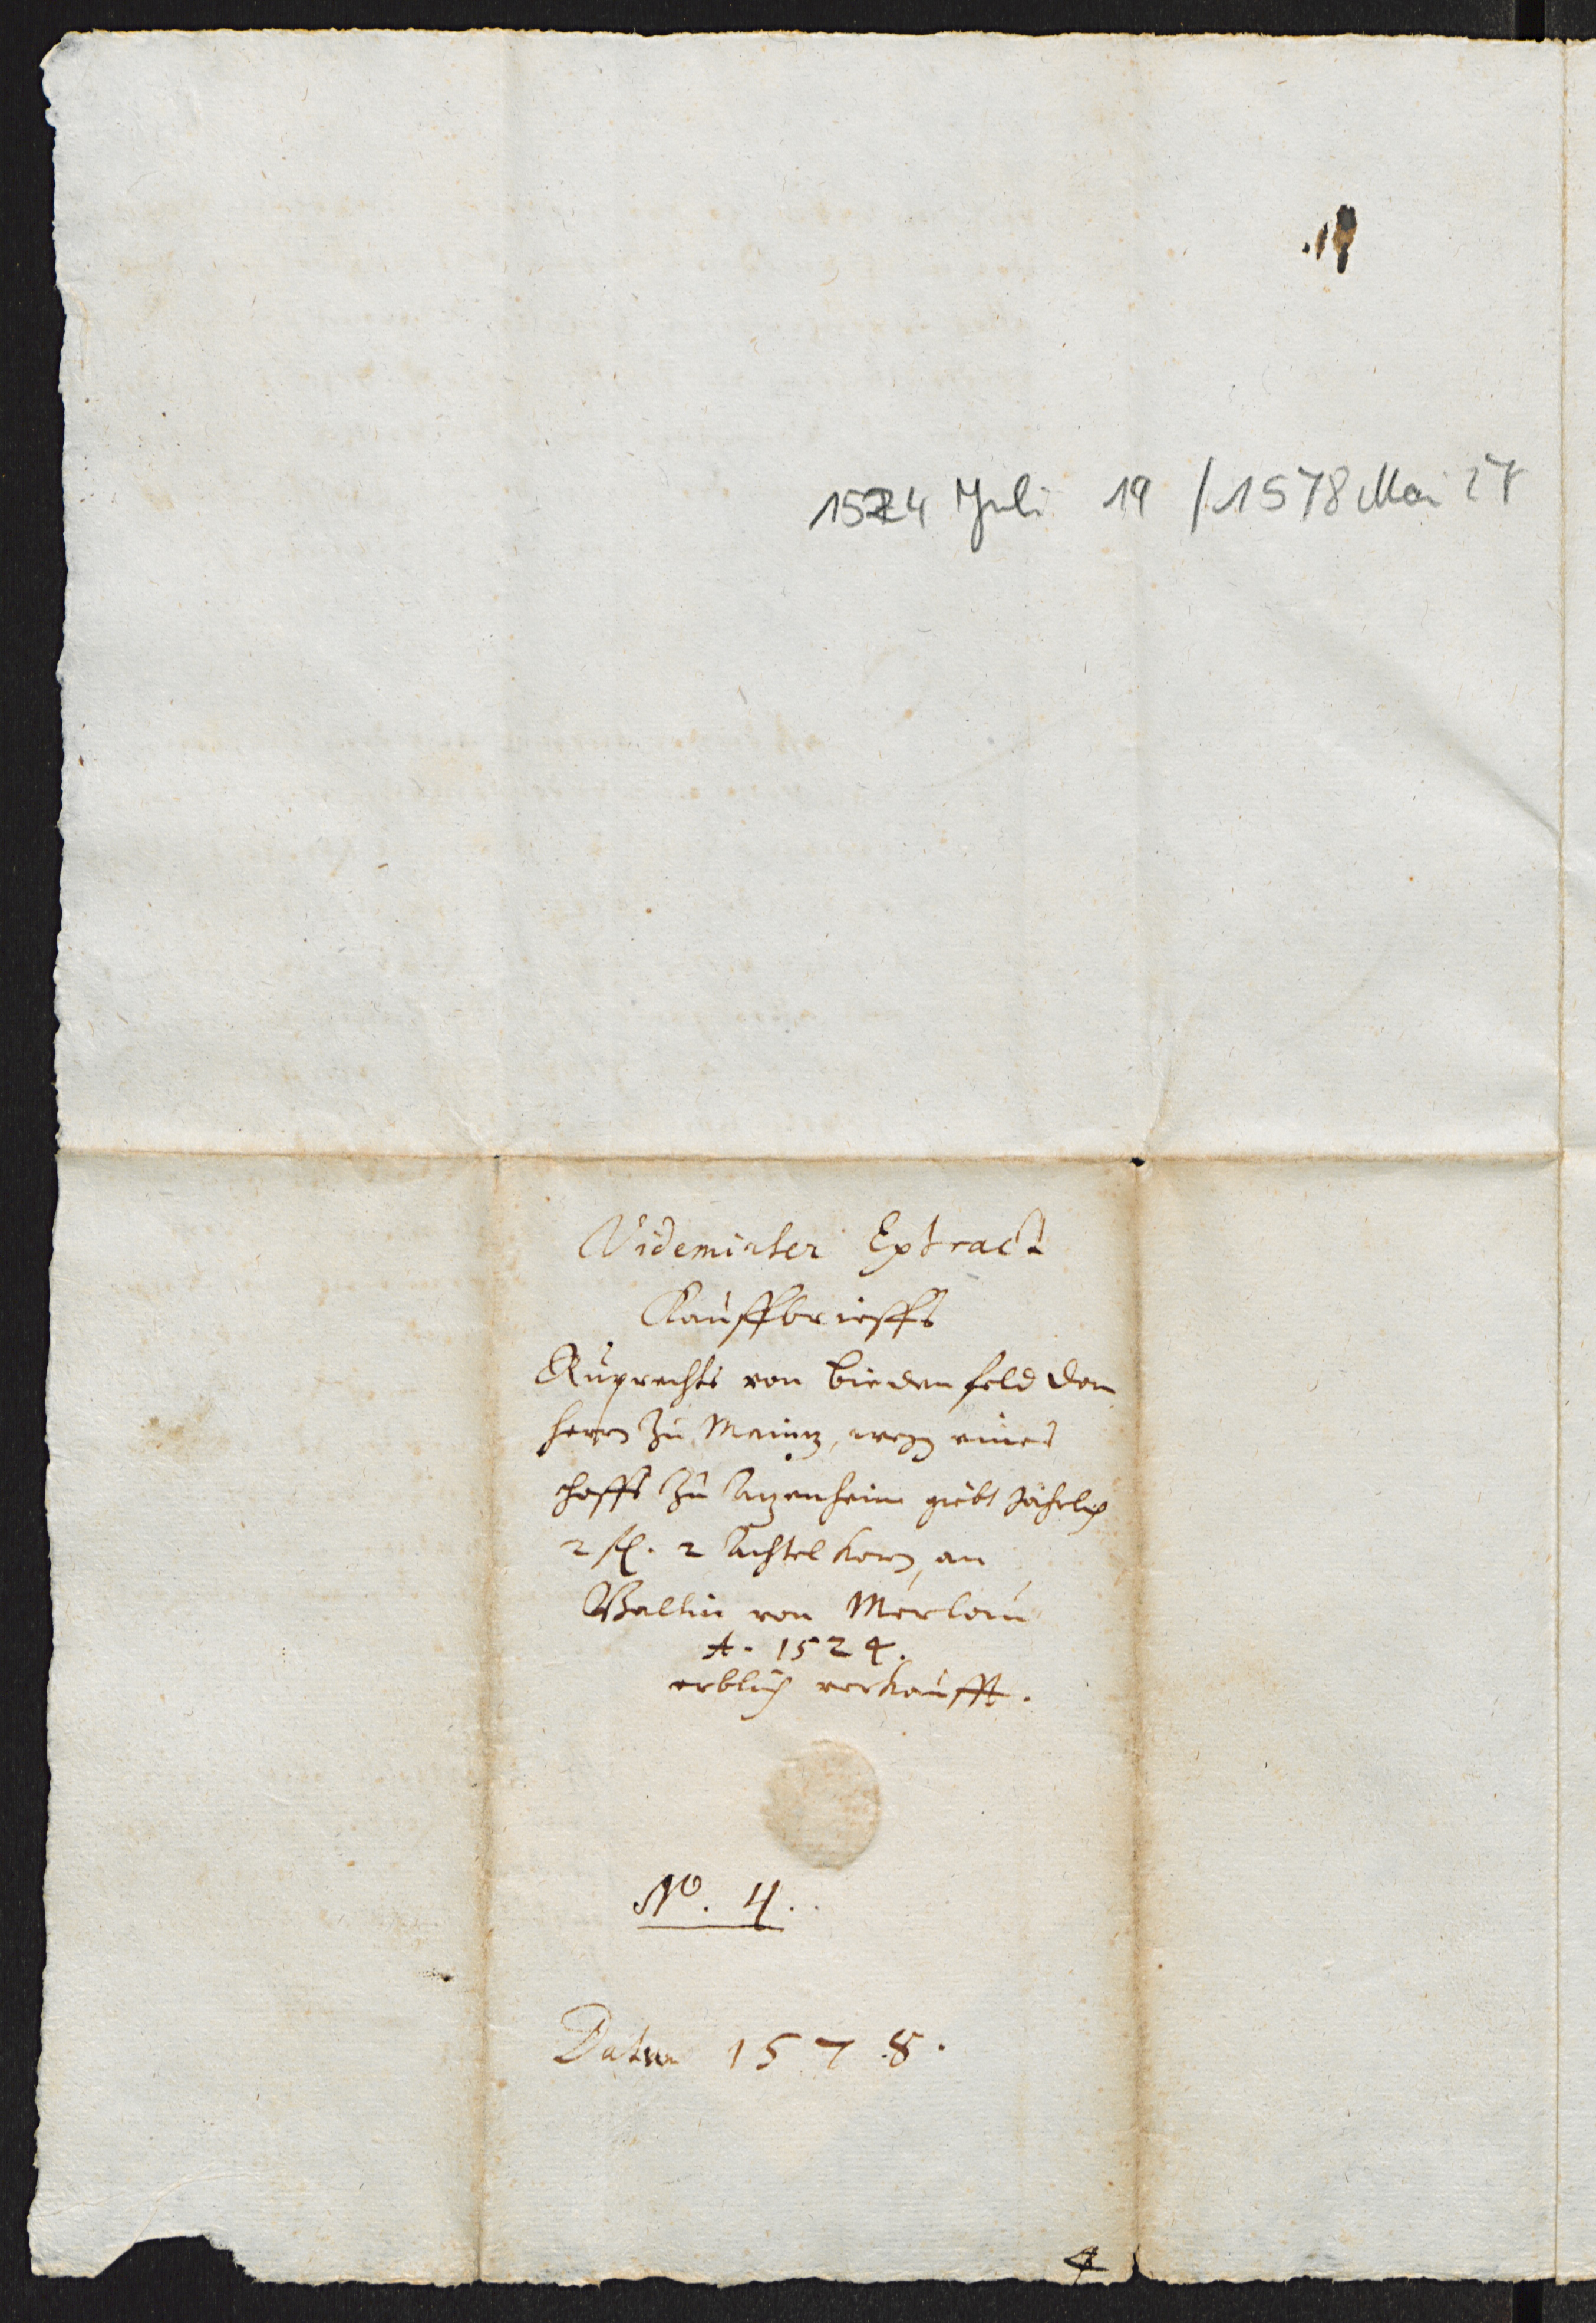 1524 Juli 19 / 1578 Mai 27
Videmirter Extract
Kauffbrieffs
Ruprechts von Biedenfeld Dom
herrn zu Maintz, wegen eines
hoffs zu Atzenheim giebt Jährlich
2 fl. 2 Achtel korn, an
Valtin von Merlau
A. 1524.
erblich verkaufft.
No. 4.
Datum 1578.
4